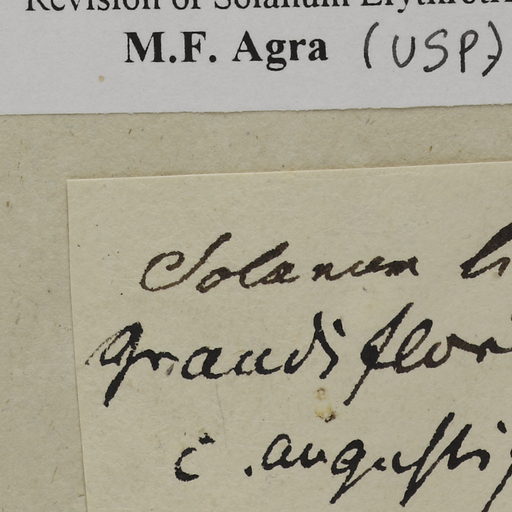 Revision of Solanum Erythrotri
M.F. Agra (USP)
Solanum
grandiflor
c. angusti